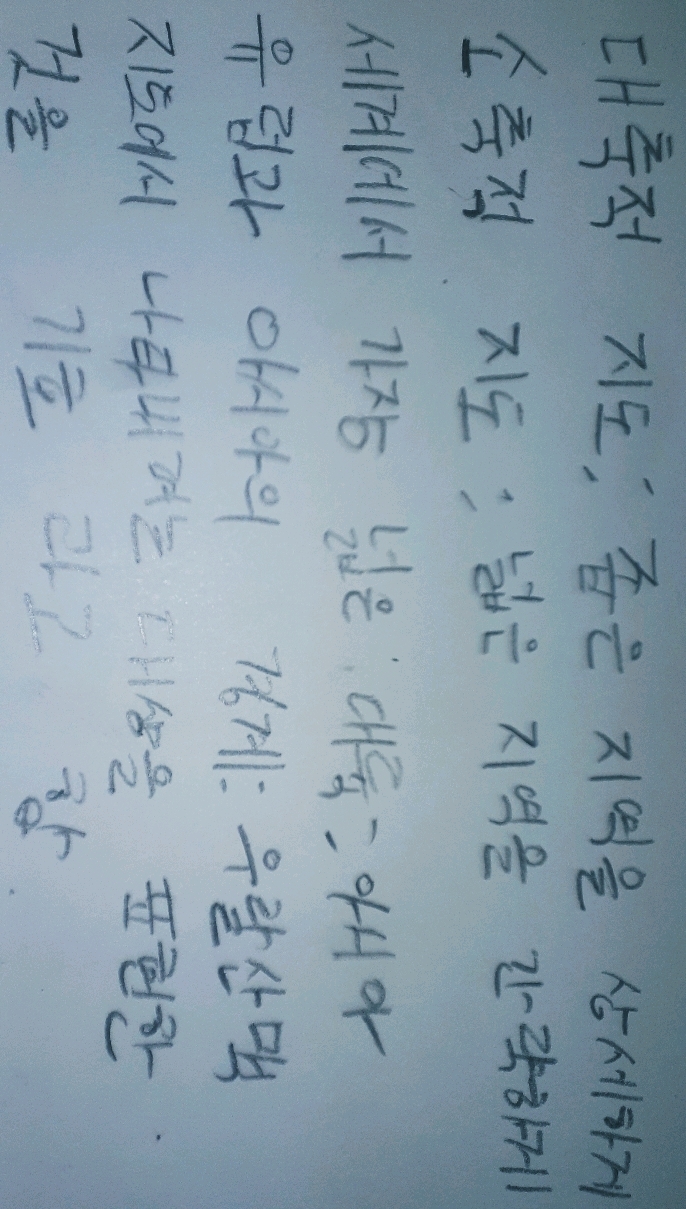 대축척 지도: 좁은 지역을 상세하게
소축척 지도: 넓은 지역을 간략하게
세계에서 가장 넓은 대륙: 아시아
유럽과 아시아의 경계: 우랄산맥
지도에서 나타내려는 대상을 표현한
것을 기호 라고 함